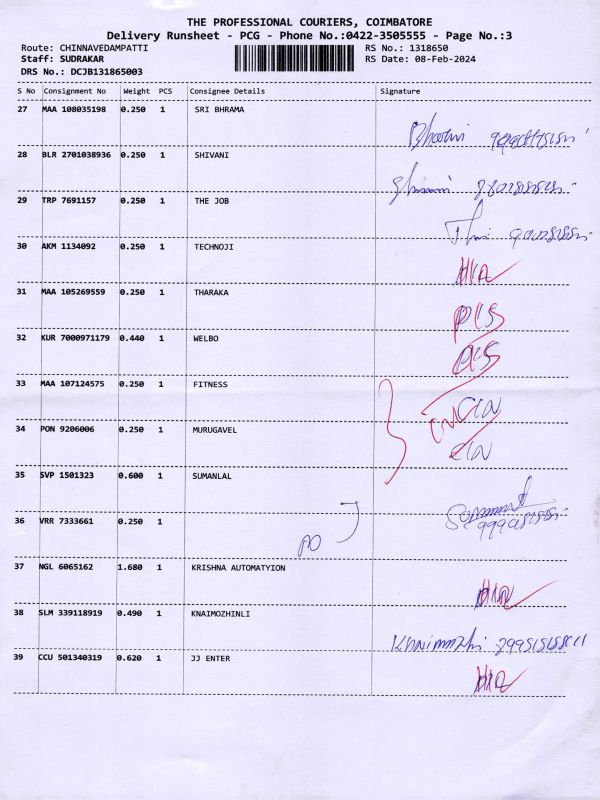 THE PROFESSIONAL COURIERS, COIMBATORE
Delivery Runsheet - PCG - Phone No.:0422-3505555 - Page No.:3
Route: CHINNAVEDAMPATTI RS No.: 1318650
Staff: SUDRAKAR RS Date: 08-Feb-2024
DRS No.: DCJB131865003
S No Consignment No Weight PCS Consignee Details Signature
27 MAA 108035198 0.250 1 SRI BHRAMA
28 BLR 2701038936 0.250 1 SHIVANI
29 TRP 7691157 0.250 1 THE JOB
30 AKM 1134092 0.250 1 TECHNOJI
31 MAA 105269559 0.250 1 THARAKA
32 KUR 7000971179 0.440 1 WELBO
33 MAA 107124575 0.250 1 FITNESS
34 PON 9206006 0.250 1 MURUGAVEL
35 SVP 1501323 0.600 1 SUMANLAL
36 VRR 7333661 0.250 1
37 NGL 6065162 1.680 1 KRISHNA AUTOMATYION
38 SLM 339118919 0.490 1 KNAIMOZHINLI
39 CCU 501340319 0.620 1 JJ ENTER